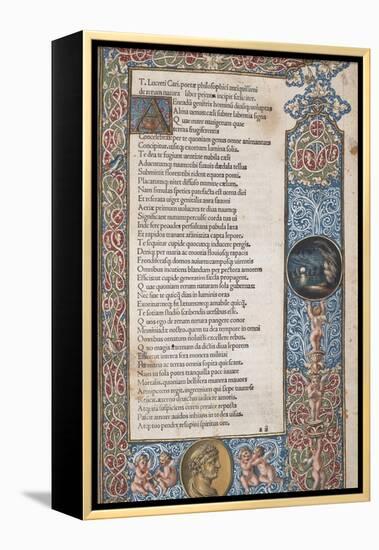 T. Lucreti Cari. poetæ philosophici antiquissimi
de rerum natura liber primus incipit fœliciter.
AEneadū genitrix hominū diuūqȝ uoluptas
Alma uenus: cæli subter labentia signa
Quæ mare nauigerum quæ
terras frugiferentis
Concelebras: per te quoniam genus omne animantum
Concipitur, uisitqȝ exortum lumina solis.
Te dea te fugiunt uenti: te nubila cæli
Aduentumqȝ tuum: tibi suauis dædala tellus
Submittit flores: tibi rident æquora ponti
Placatumqȝ nitet diffuso numine cælum.
Nam simul ac species patefacta est uerna diei
Et reserata uiget genitalis aura fauoni
Aeriæ primum uolucres te diua tuumqȝ
Significant
Inde feræ pecudes persultant pabula læta
Et rapidos tranant amnis: ita capta lepore
Te sequitur cupide quo quamqȝ inducere pergis.
Deniqȝ per maria ac montis fluuiosqȝ rapaces
Frondiferasqȝ domos auium camposqȝ uirentis
Omnibus incutiens blandum per pectora amorem
Efficis ut cupide generatim sæcla propagent.
Quæ quoniam rerum naturam sola gubernas:
Nec sine te quicqȝ dias in luminis oras
Exoritur: neqȝ fit lætum neqȝ amabile quicqȝ.
Te sociam studio scribendis uersibus esse.
Quos ego de rerum natura pangere conor
nostro: quem tu dea tempore in omni
Omnibus ornatum uoluisti excellere rebus.
Quo magis æternum da dictis diua leporem
Effice ut interea fera monera militiai
Per maria ac terras omnis sopita quiescant.
Nam tu sola potes tranquilla pace iuuare
Mortalis: quoniam belli fera munera mauors
Armipotens regit, in gremium qui sæpe tuum se
Reiicit, æterno deuictus uulnere amoris.
Atqȝ ita suspiciens
Pascit amore auidos inhians in te dea uisus.
Atqȝ tuo pendet resupini spiritus ore.
a ii